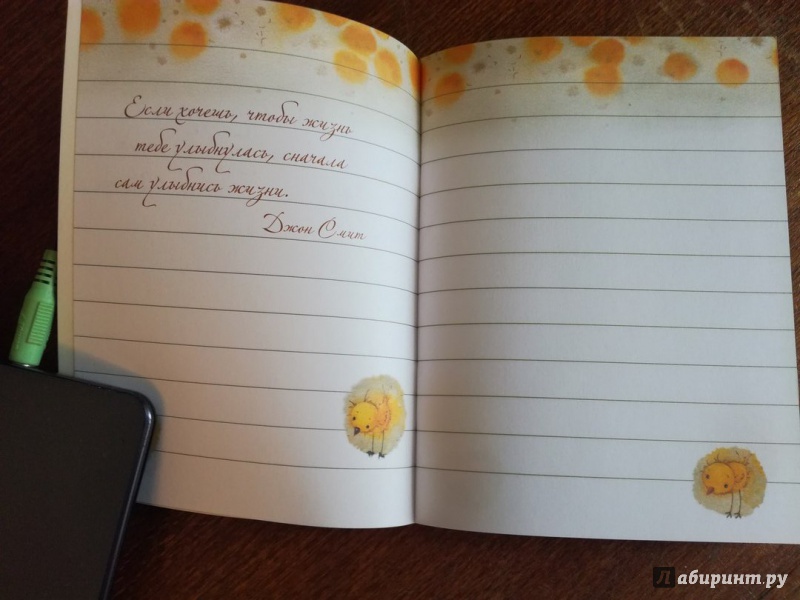 Если хочешь, чтобы жизнь
тебе улыбнулась, сначала
сам улыбнись жизни.
Джон Смит
Лабиринт.ру